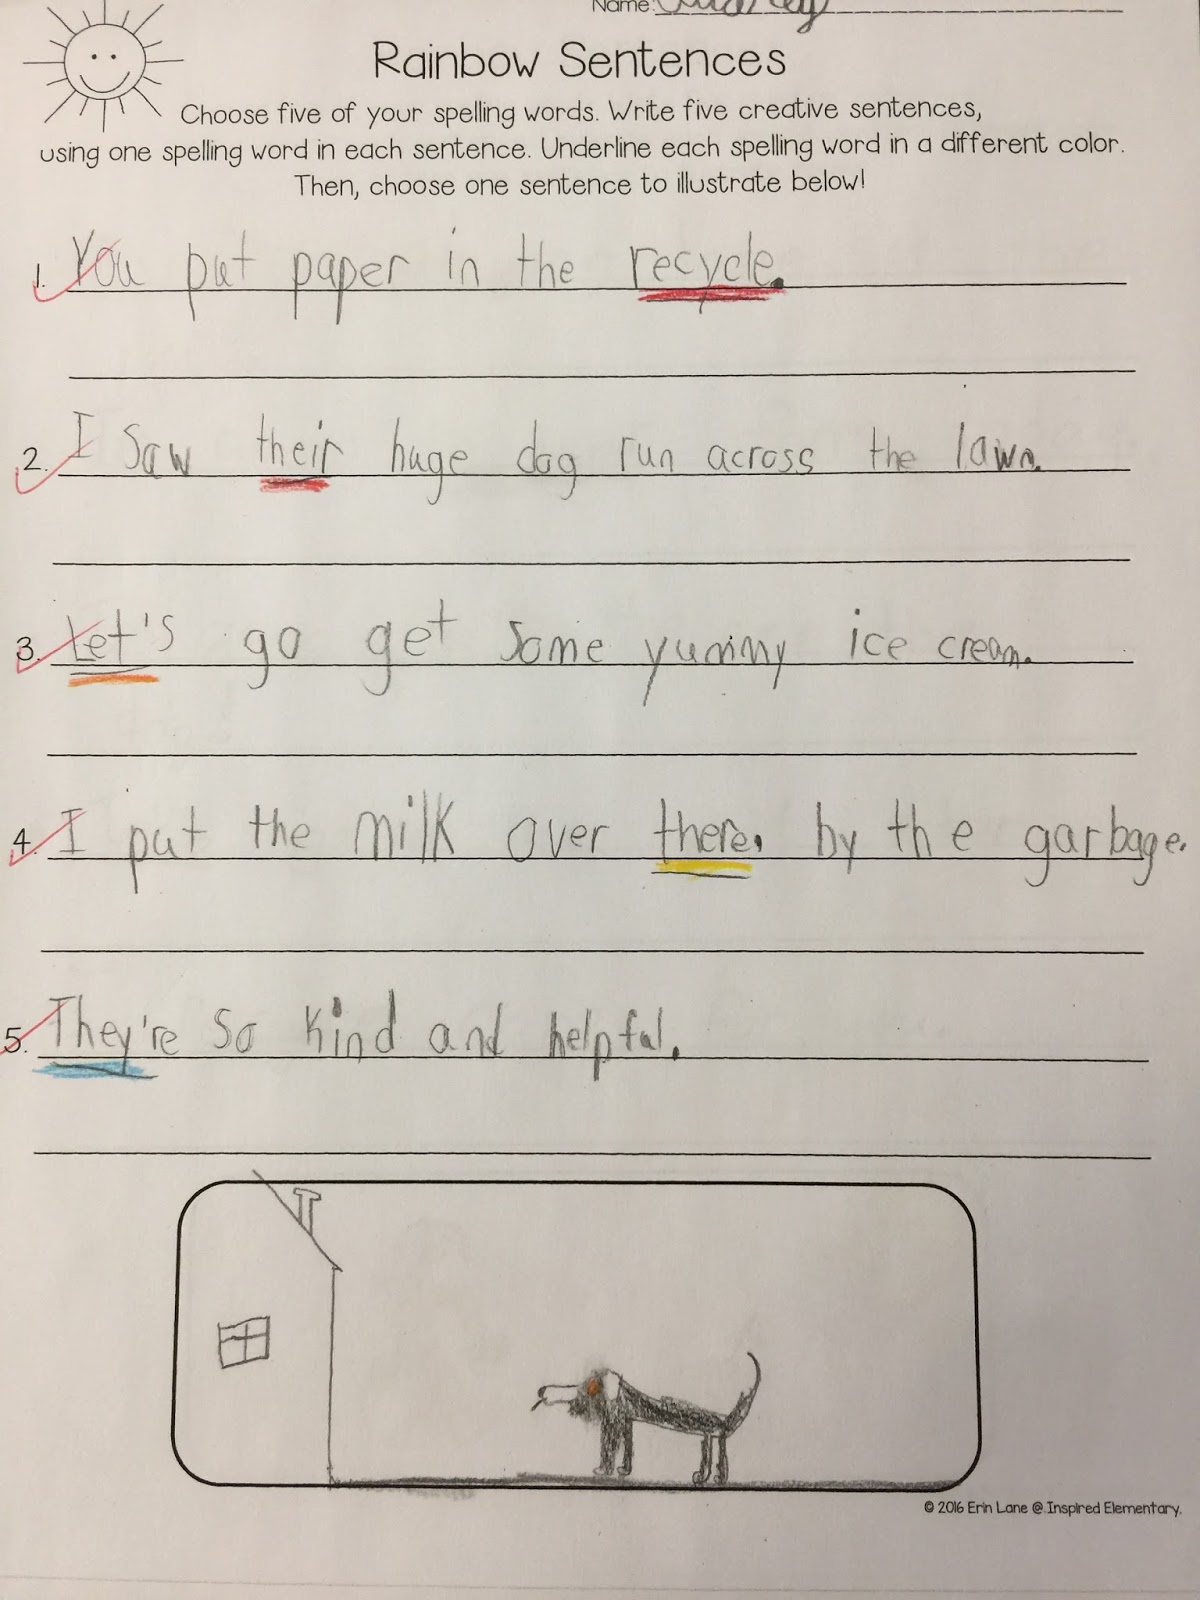 Name:
Rainbow Sentences
Choose five of your spelling words. Write five creative sentences,
using one spelling word in each sentence. Underline each spelling word in a different color.
Then, choose one sentence to illustrate below!
1. You put paper in the recycle.
2. I saw their huge dog run across the lawn.
3. Let's go get some yummy ice cream.
4. I put the milk over there. by the garbage.
5. They're so kind and helpful.
© 2016 Erin Lane @ Inspired Elementary.